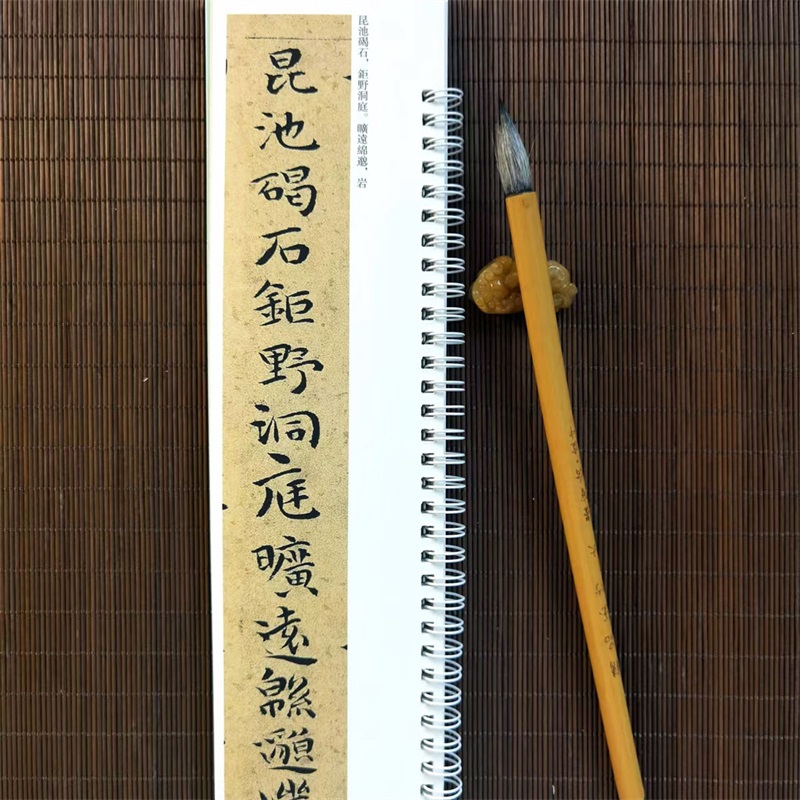 昆池碣石，鉅野洞庭。曠遠綿邈，岩
昆池碣石鉅野洞庭曠遠緜邈